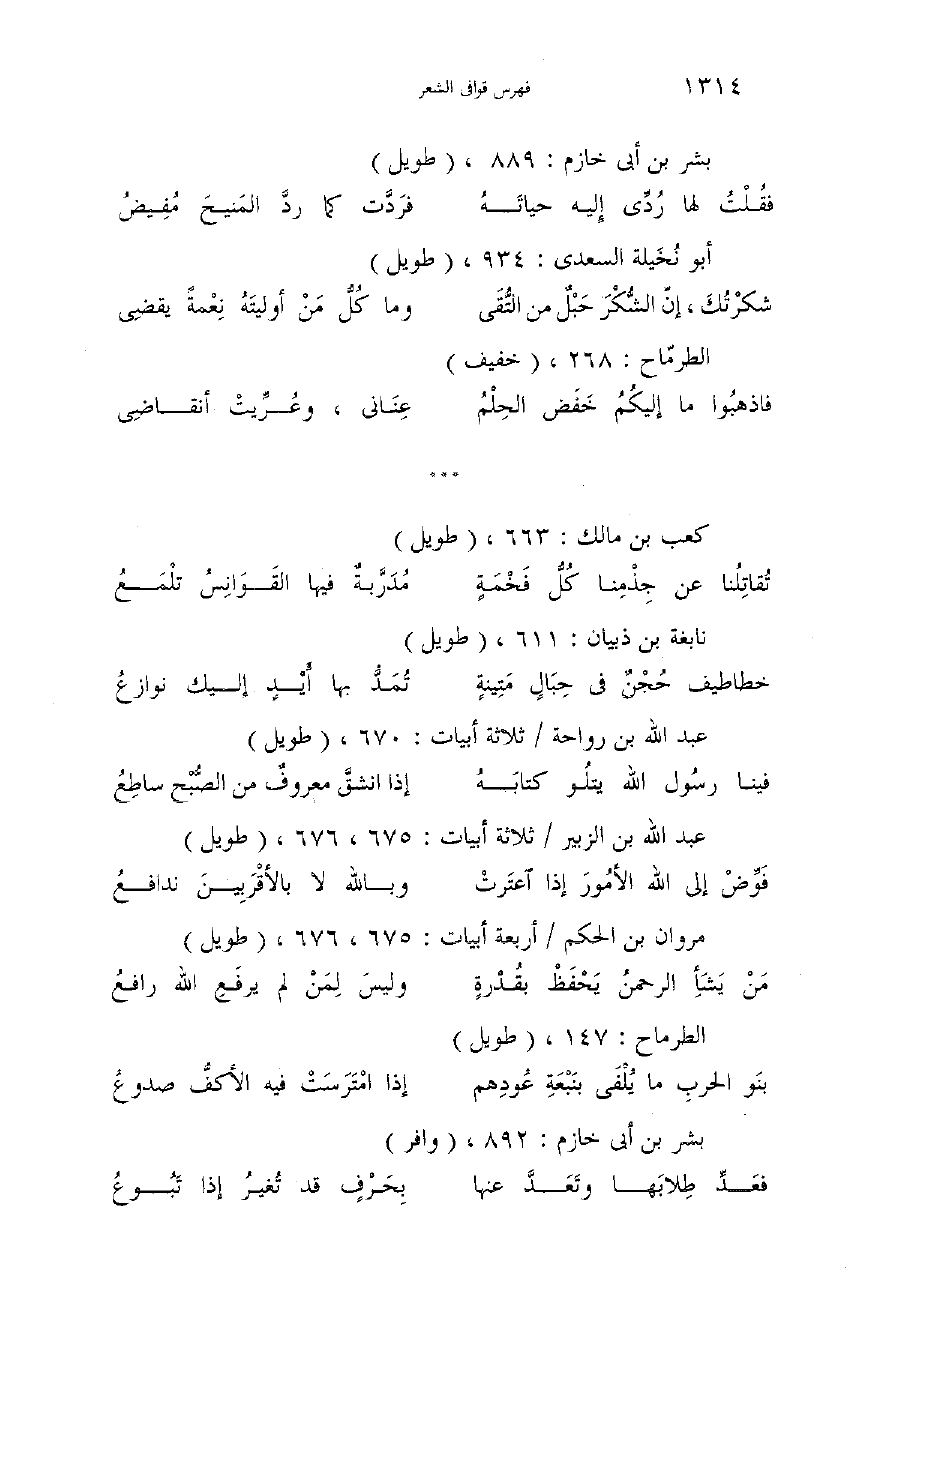 ١٣١٤ فهرس قوافى الشعر
بشر بن أبى خازم : ٨٨٩ ، ( طويل )
فقُلْتُ لها رُدِّى إليه حياتَهُ فرَدَّت كما ردَّ المَنيحَ مُفِيضُ
أبو نُخَيلة السعدى : ٩٣٤ ، ( طويل )
شكرْتُكَ ، إنّ الشُّكْرَ حَبْلٌ من التُّقَى وما كُلُّ مَنْ أوليتَهُ نِعْمةً يقضى
الطرمّاح : ٢٦٨ ، ( خفيف )
فاذهبُوا ما إليكُمُ خَفَض الحِلْمُ عِنَانى ، وعُرِّيتْ أنقاضِى
***
كعب بن مالك : ٦٦٣ ، ( طويل )
تُقاتِلُنا عن جِذْمِنا كُلُّ فَخْمَةٍ مُدَرَّبةٌ فيها القَوَانِسُ تَلْمَعُ
نابغة بن ذبيان : ٦١١ ، ( طويل )
خطاطيف حُجْنٌ فى حِبَالٍ مَتِينةٍ تُمَدُّ بها أَيْدٍ إليك نوازعُ
عبد الله بن رواحة / ثلاثة أبيات : ٦٧٠ ، ( طويل )
فينا رسُول الله يتلُو كتابَهُ إذا انشقَّ معروفٌ من الصُّبْحِ ساطِعُ
عبد الله بن الزبير / ثلاثة أبيات : ٦٧٥ ، ٦٧٦ ، ( طويل )
فَوِّضْ إلى الله الأمُورَ إذا آعتَرتْ وبالله لا بالأقْرَبِينَ ندافعُ
مروان بن الحكم / أربعة أبيات : ٦٧٥ ، ٦٧٦ ، ( طويل )
مَنْ يَشَأِ الرحمنُ يَخْفَظْ بقُدْرةٍ وليسَ لِمَنْ لم يرفَعِ الله رافعُ
الطرماح : ١٤٧ ، ( طويل )
بنَو الحربِ ما يُلْفَى بنَبْعَةِ عُودِهم إذا امْتَرَسَتْ فيه الأكفُّ صدوعُ
بشر بن أبى خازم : ٨٩٢ ، ( وافر )
فعَدِّ طِلابَها وتَعَدَّ عنها بِحَرْفٍ قد تُغيرُ إذا تَبُوعُ